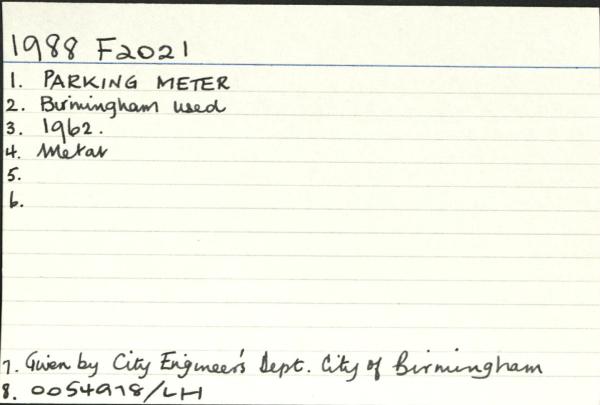 1988 F2021
1. PARKING METER
2. Birmingham used
3. 1962.
4. Metal
5.
6.
7. Given by City Engineer's Dept. City of Birmingham
8. 0054978/LH